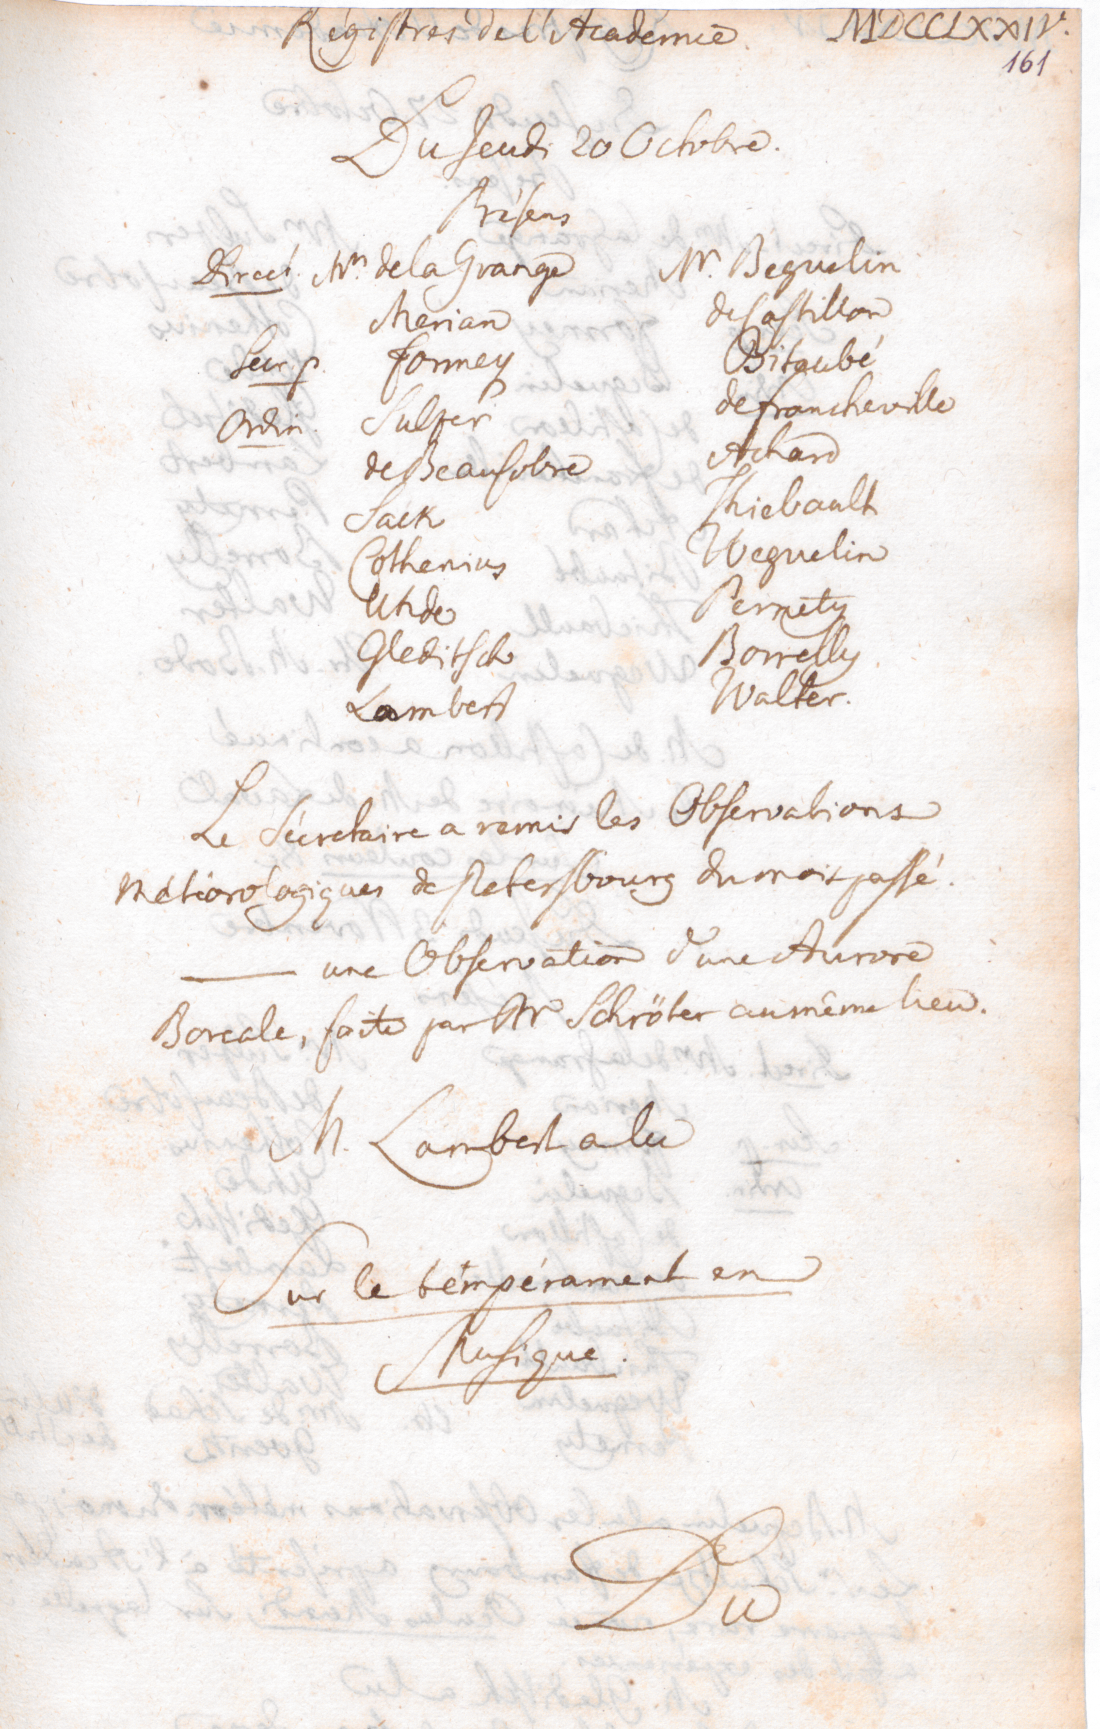 Régistres de l'Académie. MDCCLXXIV.
161
Du Jeudi 20 Octobre.
Présens
Direct. Mrs. de la Grange Mr. Beguelin
Merian de Castillon
Secr. p. Formey Bitaubé
Ordin. Sulzer de Francheville
de Beausobre Achard
Sack Thiebault
Cothenius Weguelin
Uhde Pernety
Gleditsch Borrelly
Lambert Walter.
Le Sécretaire a remis les Observations
Météorologiques de Petersbourg du mois passé.
— une Observation d'une Aurore
Boreale, faite par Mr Schröter au même lieu.
M. Lambert a lu
Sur le témpérament en
Musique.
Du